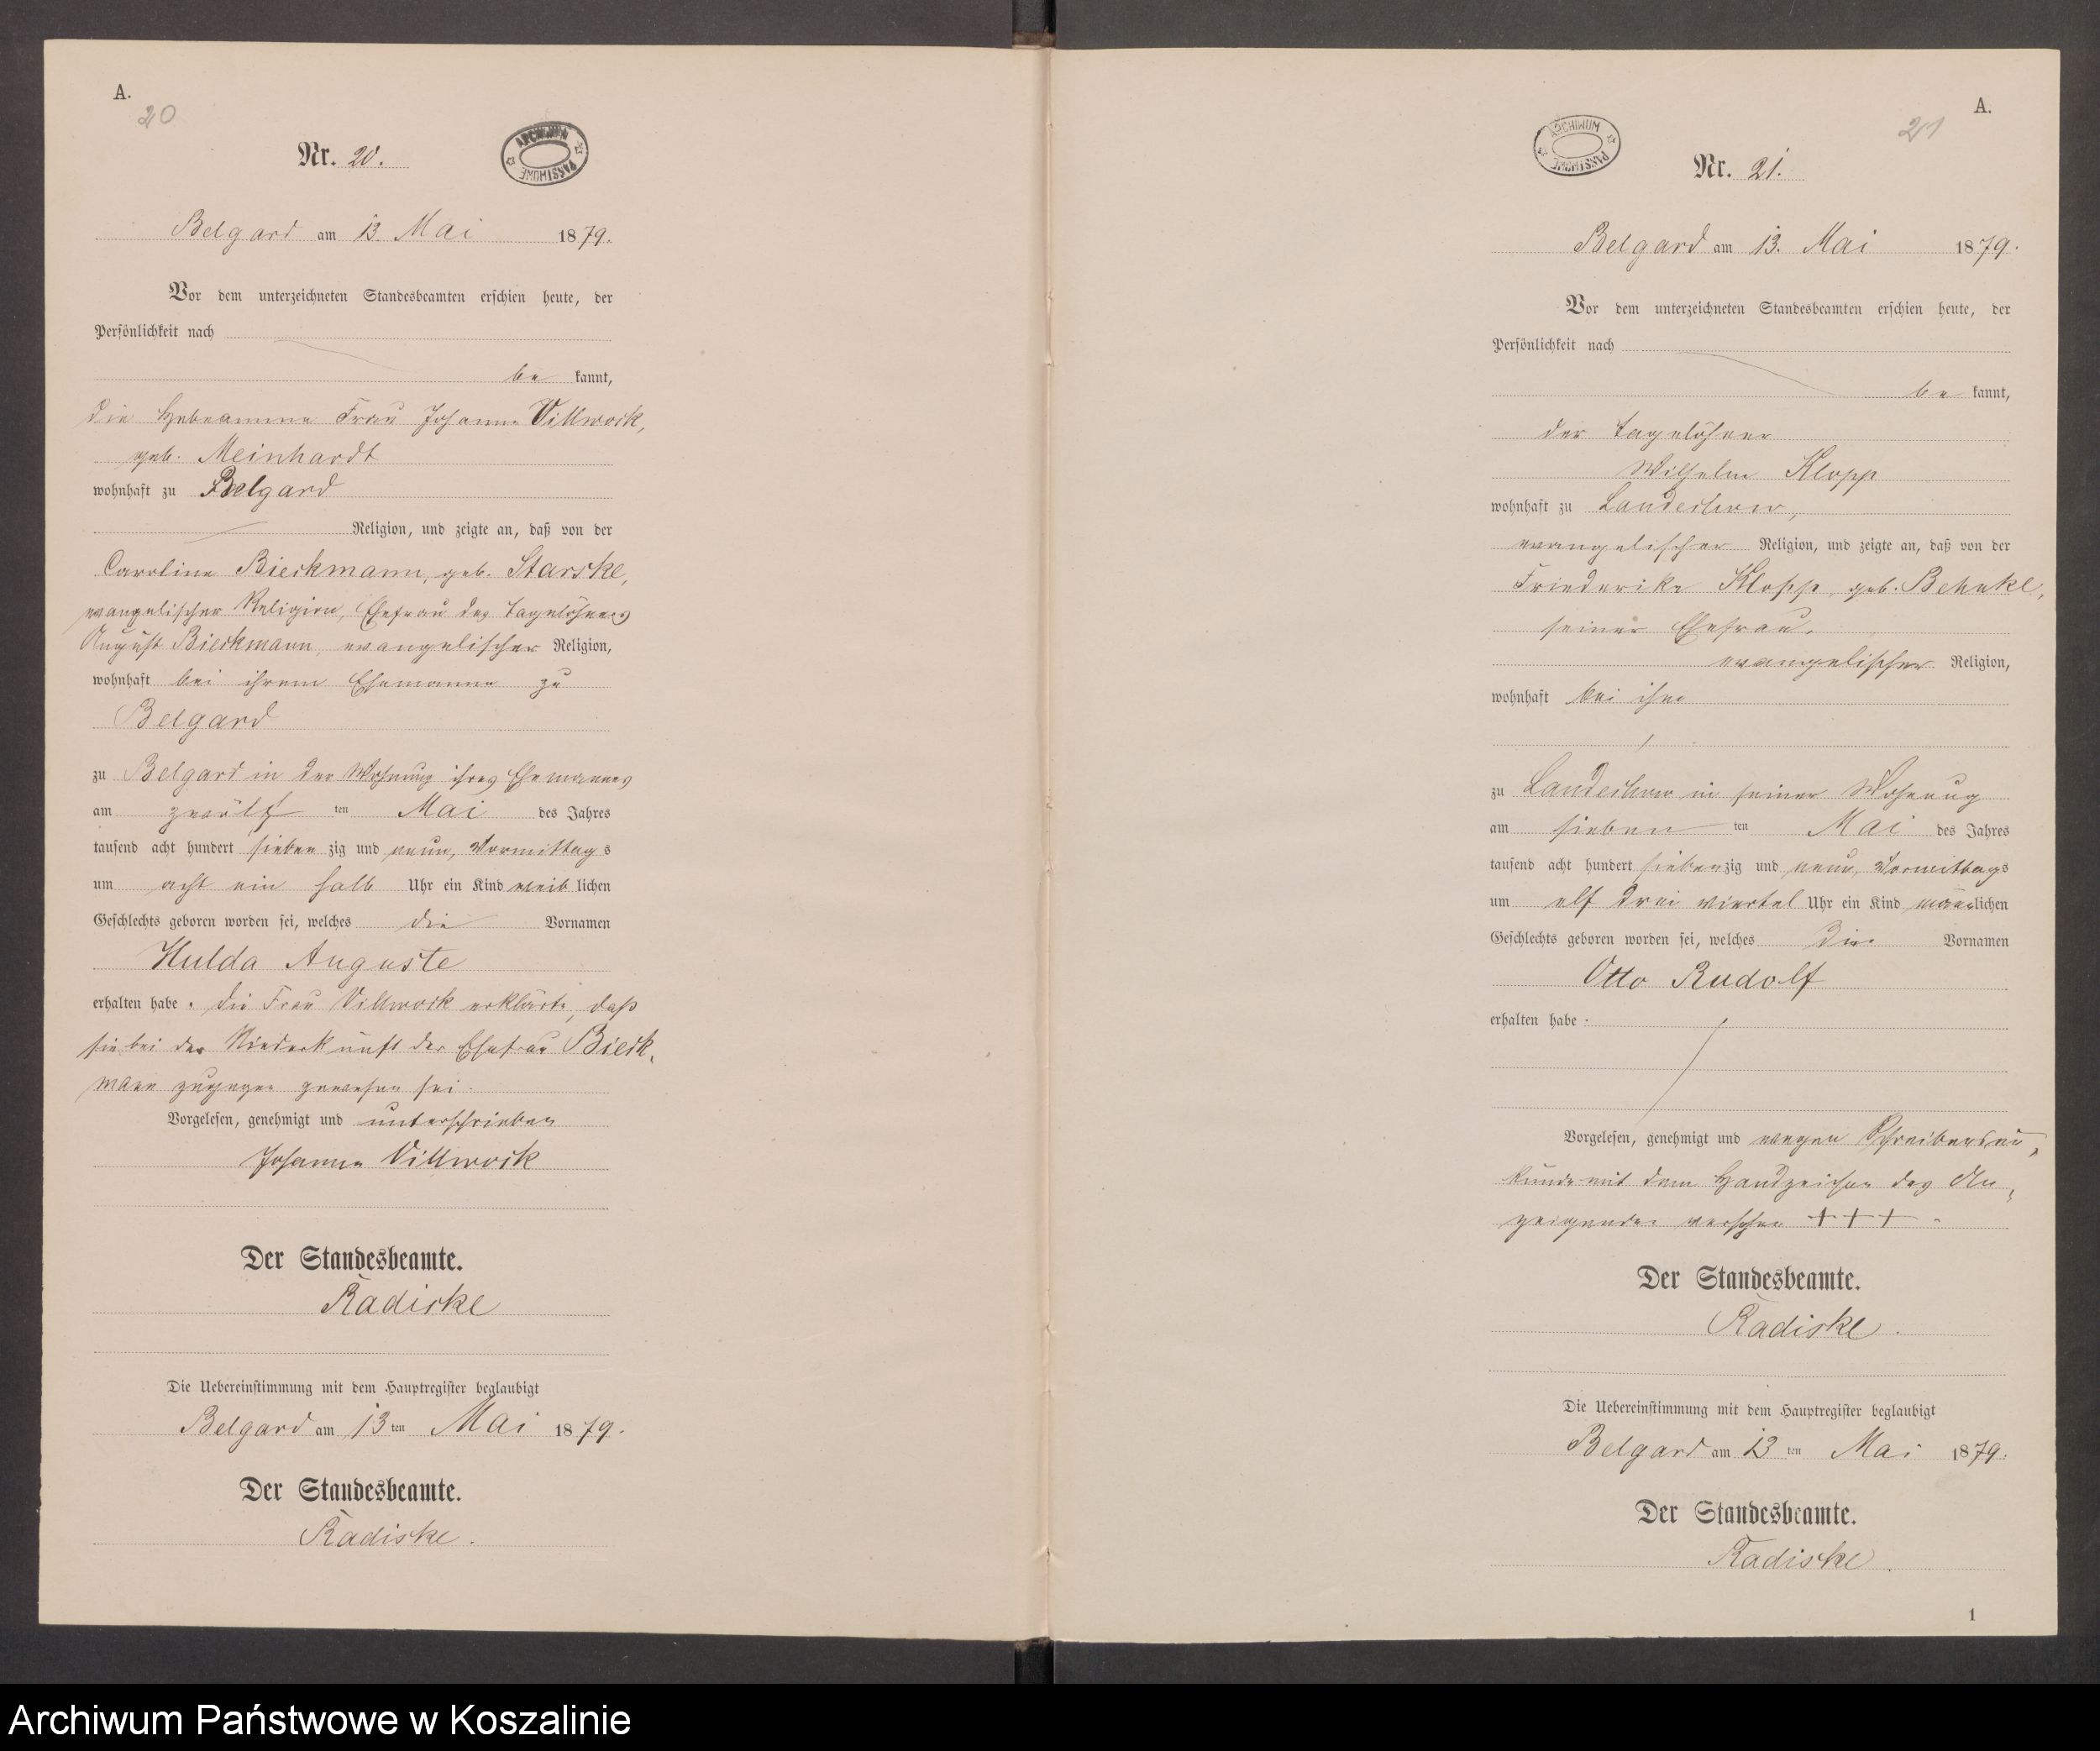 A.
20
Nr. 20.
ARCHIWUM PAŃSTWOWE
Belgard am 13. Mai 1879.
Vor dem unterzeichneten Standesbeamten erschien heute, der
Persönlichkeit nach
be kannt,
die Hebeamme Frau Johanna Villwock,
geb. Meinhardt
wohnhaft zu Belgard
Religion, und zeigte an, daß von der
Caroline Bieckmann, geb. Starske,
evangelischer Religion, Ehefrau des Tagelöhners
August Bieckmann, evangelischer Religion,
wohnhaft bei ihrem Ehemanne zu
Belgard
zu Belgard in der Wohnung ihres Ehemannes
am zwölf ten Mai des Jahres
tausend acht hundert sieben zig und neun, Vormittags
um acht ein halb Uhr ein Kind weib lichen
Geschlechts geboren worden sei, welches die Vornamen
Hulda Auguste
erhalten habe. die Frau Villwock erklärte, daß
sie bei der Niederkunft der Ehefrau Bieck-
mann zugegen gewesen sei.
Vorgelesen, genehmigt und unterschrieben
Johanna Villwock
Der Standesbeamte.
Radiske
Die Uebereinstimmung mit dem Hauptregister beglaubigt
Belgard am 13 ten Mai 1879.
Der Standesbeamte.
Radiske.
A.
21
ARCHIWUM PAŃSTWOWE
Nr. 21.
Belgard am 13. Mai 1879.
Vor dem unterzeichneten Standesbeamten erschien heute, der
Persönlichkeit nach
be kannt,
der Tagelöhner
Wilhelm Klopp
wohnhaft zu
evangelischer Religion, und zeigte an, daß von der
Friederike Klopp, geb. Behnke,
seiner Ehefrau,
evangelischer Religion,
wohnhaft bei ihm
zu in seiner Wohnung
am sieben ten Mai des Jahres
tausend acht hundert siebenzig und neun, Vormittags
um elf drei viertel Uhr ein Kind männlichen
Geschlechts geboren worden sei, welches die Vornamen
Otto Rudolf
erhalten habe.
Vorgelesen, genehmigt und wegen Schreibensun-
kunde mit dem Handzeichen des An-
zeigenden versehen +++.
Der Standesbeamte.
Radiske.
Die Uebereinstimmung mit dem Hauptregister beglaubigt
Belgard am 13 ten Mai 1879.
Der Standesbeamte.
Radiske.
1
Archiwum Państwowe w Koszalinie